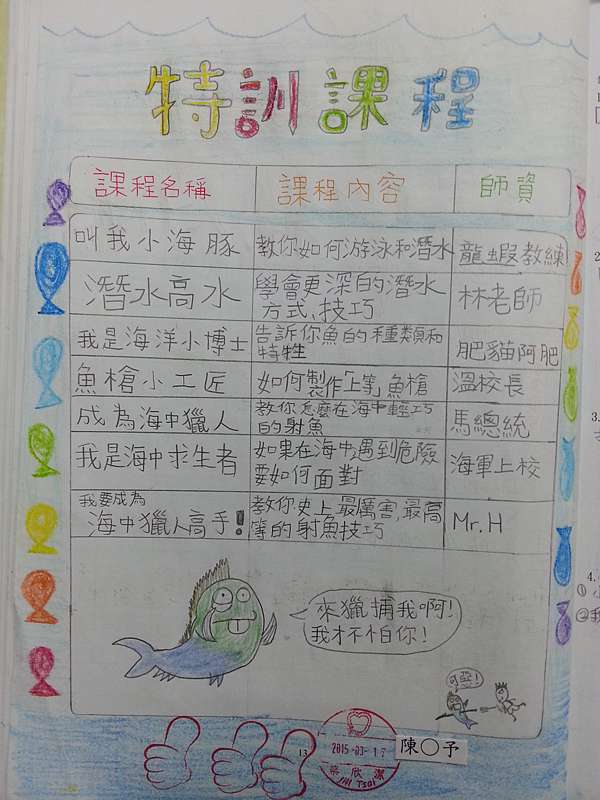 特訓課程
課程名稱 課程內容 師資
叫我小海豚 教你如何游泳和潛水 龍蝦教練
潛水高水 學會更深的潛水
方式、技巧 林老師
我是海洋小博士 告訴你魚的種類和
特性 肥貓阿肥
魚槍小工匠 如何製作「上等」魚槍 溫校長
成為海中獵人 教你怎麼在海中輕巧
的射魚 馬總統
我是海中求生者 如果在海中遇到危險
要如何面對 海軍上校
我要成為
海中獵人高手! 教你史上最厲害,最高
等的射魚技巧 Mr.H
來獵捕我啊!
我才不怕你!
可惡!
13
2015-03-17
陳○予